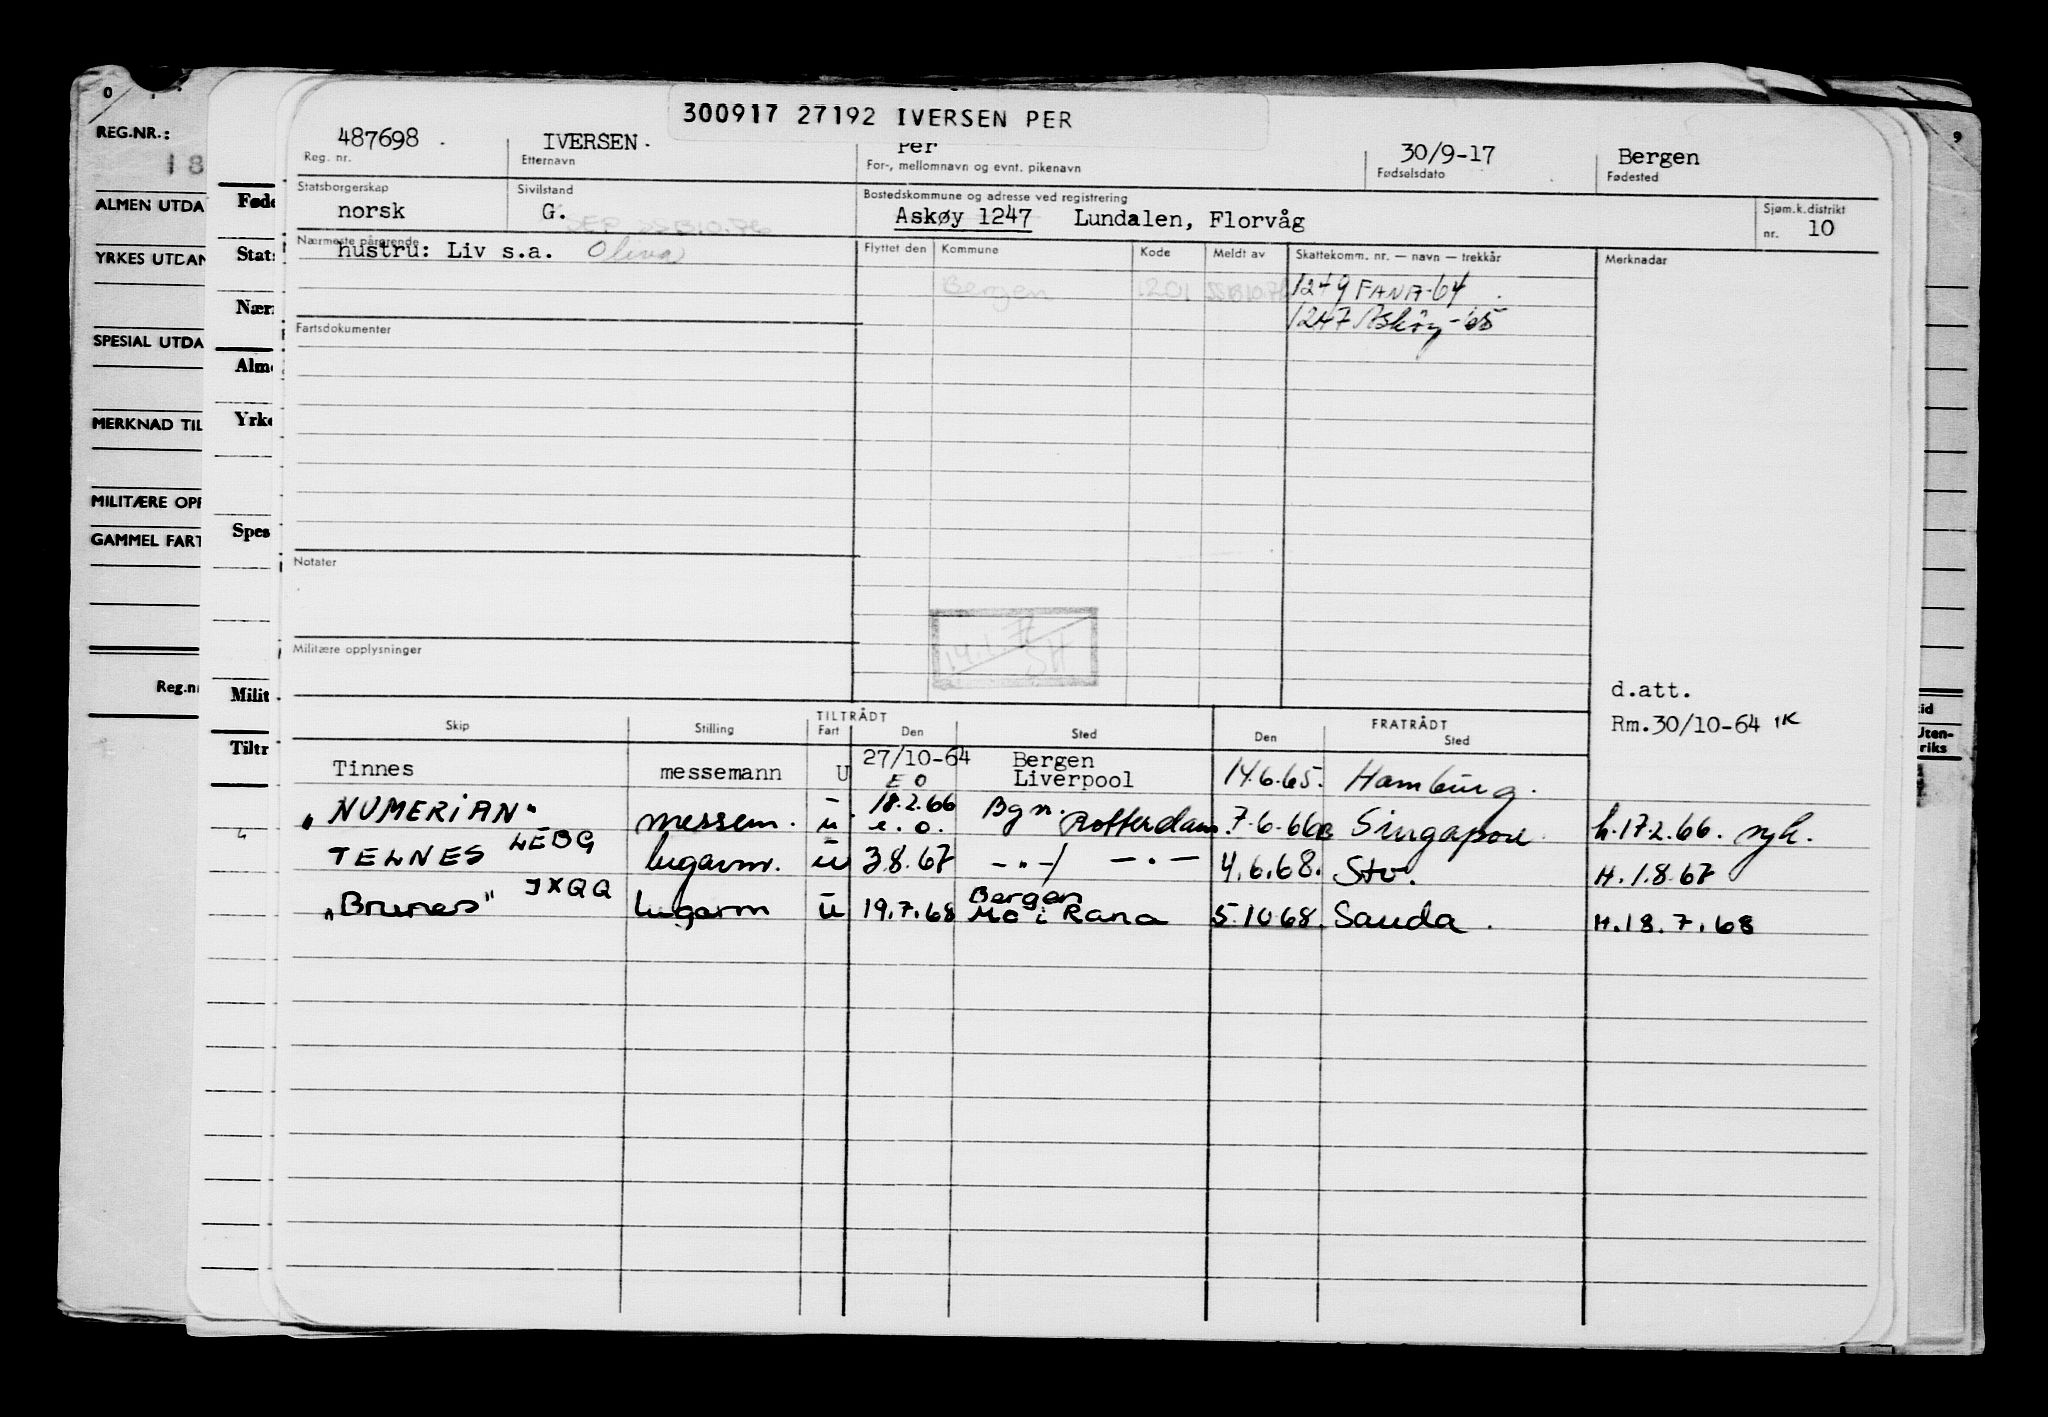 O 9
REG.NR.:
18
ALMEN UTDA
YRKES UTDAN
SPESIAL UTDA
MERKNAD TIL
MILITÆRE OPP
GAMMEL FART
Reg.nr
Føde
Stats
Nærm
Alme
Yrke
Spes
Milit
Tiltr
300917 27192 IVERSEN PER
487698 . IVERSEN. Per 30/9-17 Bergen
Reg. nr. Etternavn For-, mellomnavn og evnt. pikenavn Fødselsdato Fødested
Statsborgerskap Sivilstand Bostedskommune og adresse ved registrering Sjøm.k.distrikt
norsk G. Askøy 1247 Lundalen, Florvåg nr. 10
SEP SSB10.76
Nærmeste pårørende Flyttet den Kommune Kode Meldt av Skattekomm. nr. — navn — trekkår Merknadar
hustru: Liv s.a. Oliva
Bergen 1201 SSB10.76 1249 FANA-64
1247 Askøy-65
Fartsdokumenter
Notater
14.1.7 SH
Militære opplysninger
d.att.
Rm.30/10-64 IK
Skip Stilling TILTRÅDT Fart Den Sted FRATRÅDT Den Sted
Tinnes messemann U 27/10-64 Bergen Liverpool 14.6.65. Hamburg.
E O
"NUMERIAN" messem. u 18.2.66 e.o. Bgn. Rotterdam. 7.6.66 Singapore h.17.2.66. syk.
TELNES LEBG lugarm. u 3.8.67 -"-/ -"- 4.6.68. Stv. H.1.8.67
"Brunes" JXQQ lugarm u 19.7.68 Bergen Mo i Rana 5.10.68. Sauda. H.18.7.68
id
Uten-
riks